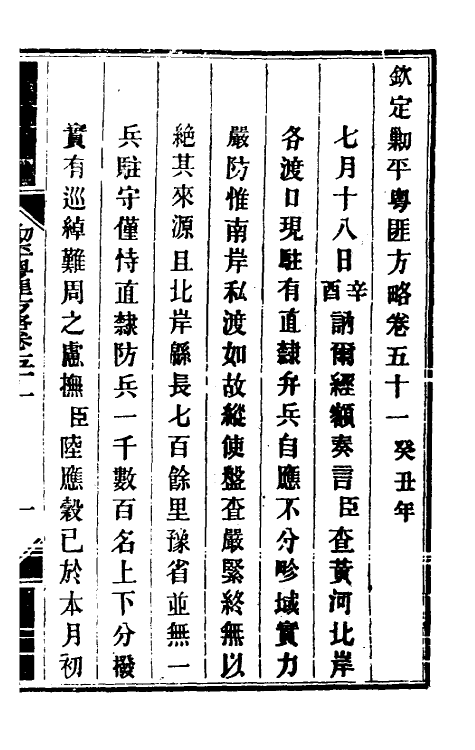 欽定勦平粵匪方略卷五十一 癸丑年
七月十八日辛酉訥爾經額奏言臣查黃河北岸
各渡口現駐有直隸弁兵自應不分畛域實力
嚴防惟南岸私渡如故縱使盤查嚴緊終無以
絕其來源且北岸緜長七百餘里豫省並無一
兵駐守僅恃直隸防兵一千數百名上下分撥
實有巡綽難周之慮撫臣陸應穀已於本月初